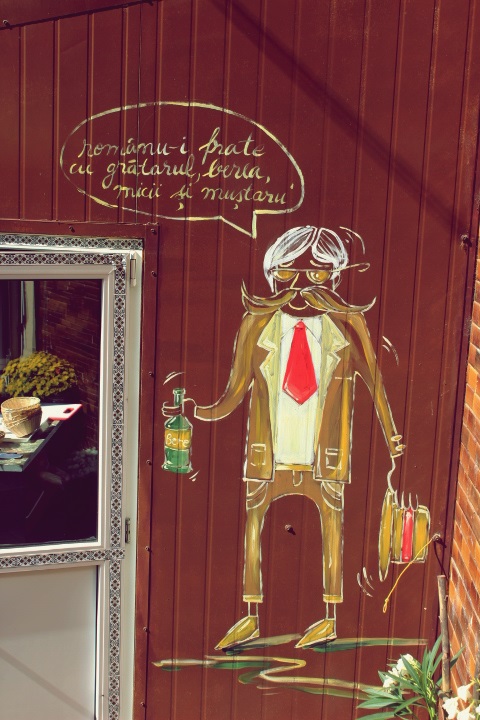 românu-i frate
cu grătarul, berea,
micii și muștaru'
Bere